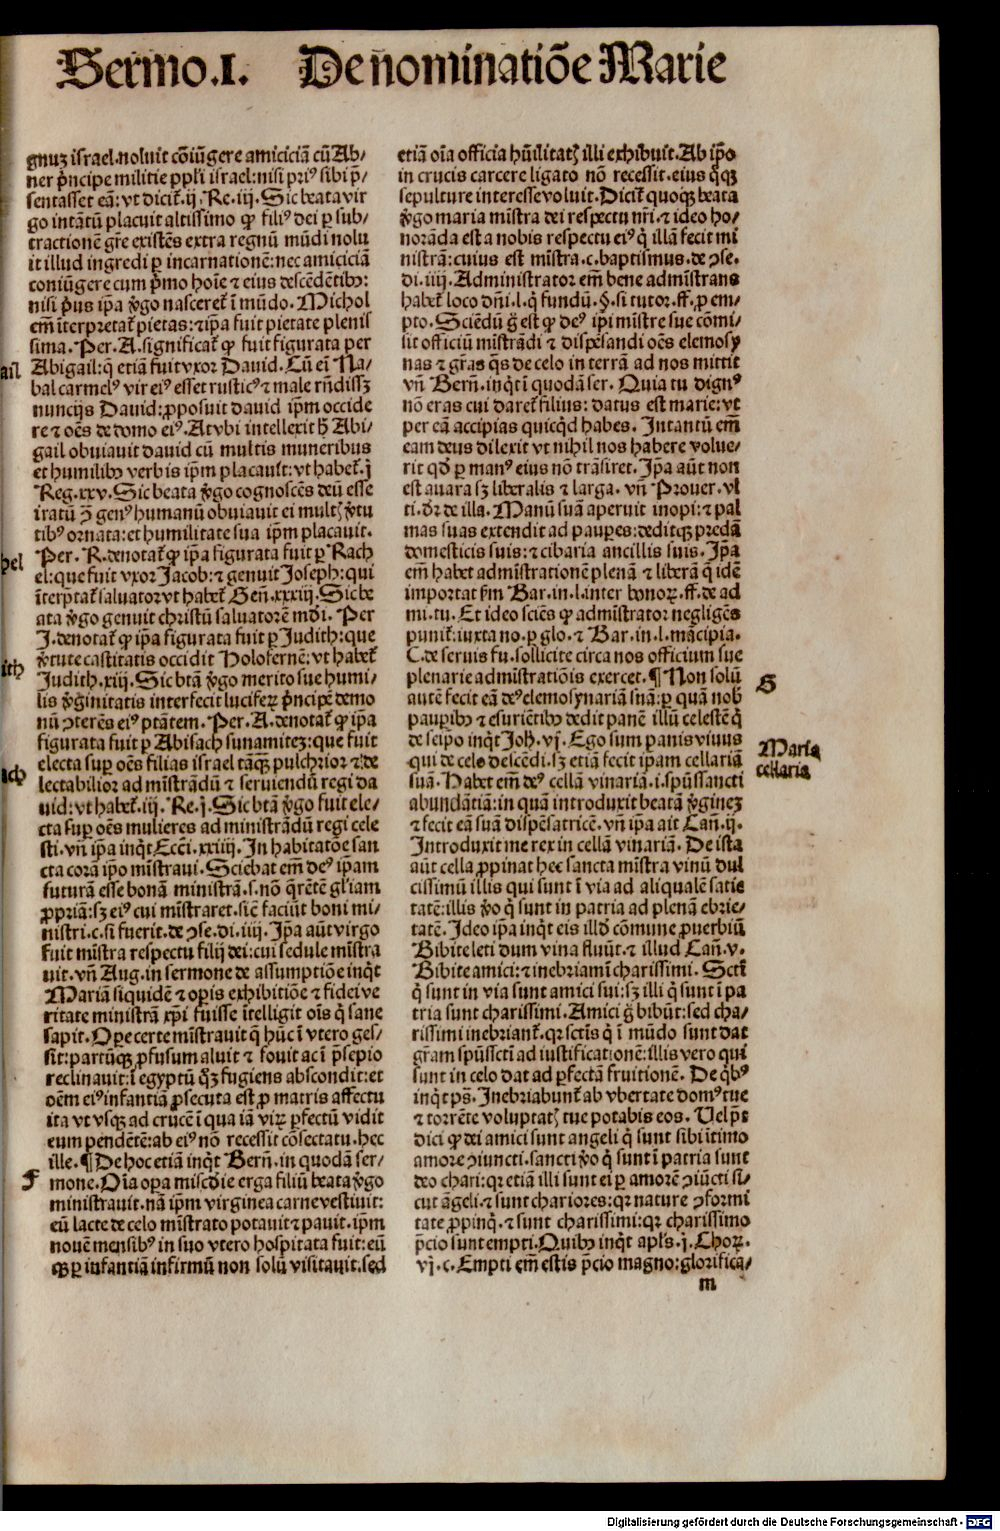 Sermo.I. De nominatiõe Marie
gnuʒ israel.noluit cõiũgere amiciciã cũ Ab/
ner p̃ncipe militie ppl̃i israel:nisi priꝰ sibi p̃/
sentasset eã:vt dicit̃.ij.Re.iij.Sic beata vir
go intãtũ placuit altissimo ꝙ filiꝰ dei ꝑ sub/
tractionẽ gr̃e existẽs extra regnũ mũdi nolu
it illud ingredi ꝑ incarnationẽ:nec amiciciã
coniũgere cum p̃mo hoĩe ⁊ eius descẽdẽtibꝰ:
nisi p̃us ip̃a v̓go nasceret̃ ĩ mũdo. Michol
em̃ ĩterpretat̃ pietas:⁊ ip̃a fuit pietate plenis
sima. Per.A.significat̃ ꝙ fuit figurata per
ail
Abigail:q̃ etiã fuit vxor Dauid. Cũ em̃ Na/
bal carmelꝰ vir eiꝰ esset rusticꝰ ⁊ male rñdissʒ
nuncijs Dauid:ꝓposuit dauid ip̃m occide
re ⁊ oẽs de domo eiꝰ.At vbi intellexit h̃ Abi/
gail obuiauit dauid cũ multis muneribus
et humilibꝰ verbis ip̃m placauit:vt habet̃.j
Reg.xxv.Sic beata v̓go cognoscẽs deũ esse
iratũ ꝯ̃ genꝰ humanũ obuiauit ei multꝭ v̓tu
tibꝰ ornata:et humilitate sua ip̃m placauit.
Per.R.denotat̃ ꝙ ip̃a figurata fuit ꝑ Rach
hel
el:que fuit vxor Jacob:⁊ genuit Joseph:qui
ĩterp̃tat̃ saluator vt habet̃ Geñ.xxxiij.Sic be
ata v̓go genuit christũ saluatorẽ mũdi. Per
J.denotat̃ ꝙ ip̃a figurata fuit ꝑ Judith:que
v̓tute castitatis occidit Holofernẽ:vt habet̃
ith
Judith.xiij.Sic btã v̓go merito sue humi/
lis v̓ginitatis interfecit luciferꝝ p̃ncipẽ demo
nũ ꝯterẽs eiꝰ ptãtem. Per.A.denotat̃ ꝙ ip̃a
figurata fuit ꝑ Abisach sunamitez:que fuit
electa suꝑ oẽs filias israel tãqꝫ pulchrior ⁊ de
ach
lectabilior ad mĩstrãdũ ⁊ seruiendũ regi da
uid:vt habet̃.iij.Re.j.Sic btã v̓go fuit ele/
cta suꝑ oẽs mulieres ad ministrãdũ regi cele
sti.vñ ip̃a inq̃t Ecci.xxiiij.In habitatõe san
cta corã ip̃o mĩstraui.Sciebat em̃ deꝰ ip̃am
futurã esse bonã ministrã.s.nõ q̃rẽtẽ gl̃iam
ꝓpriã:sʒ eiꝰ cui mĩstraret.sic̃ faciũt boni mi/
nistri.c.si fuerit.de ꝯse.di.iiij.Ip̃a aũt virgo
fuit mĩstra respectu filij dei:cui sedule mĩstra
uit.vñ Aug.in sermone de assumptiõe inq̃t
Mariã siquidẽ ⁊ oꝑis exhibitiõe ⁊ fidei ve
ritate ministrã xp̃i fuisse ĩtelligit oĩs q̃ sane
sapit.Oꝑe certe mĩstrauit q̃ hũc ĩ vtero ges/
sit:partũqꝫ ꝓfusum aluit ⁊ fouit ac ĩ p̃sepio
reclinauit:ĩ egyptũ q̃ʒ fugiens abscondit:et
oẽm eiꝰ infantiã ꝓsecuta est ꝓ matris affectu
ita vt vsqꝫ ad crucẽ ĩ qua iã virꝝ ꝑfectũ vidit
eum pendẽtẽ:ab eiꝰ nõ recessit cõsectatu.hec
ille.¶De hoc etiã inq̃t Berñ.in quodã ser/
F
mone.Oĩa oꝑa mĩscdie erga filiũ beata v̓go
ministrauit.nã ip̃m virginea carne vestiuit:
eũ lacte de celo mĩstrato potauit ⁊ pauit.ip̃m
nouẽ mensibꝰ in suo vtero hospitata fuit:eũ
qꝫ ꝑ infantiã infirmũ non solũ visitauit.sed
etiã oĩa officia hũilitatꝭ illi exhibuit.Ab ip̃o
in crucis carcere ligato nõ recessit.eius q̃qꝫ
sepulture interesse voluit.Dicit̃ quoqꝫ beata
v̓go maria mĩstra dei respectu nr̃i.⁊ ideo ho/
norãda est a nobis respectu eiꝰ q̃ illã fecit mi
nistrã:cuius est mĩstra.c.baptismus.de ꝯse.
di.iiij.Administrator em̃ bene admĩstrans
habet̃ loco dñi.l.q̃ fundũ.§.si tutor.ff.ꝓ em/
pto.Sciẽdũ g̃ est ꝙ deꝰ ip̃i mĩstre sue cõmi/
sit officiũ mĩstrãdi ⁊ disp̃esandi oẽs elemosy
nas ⁊ gr̃as q̃s de celo in terrã ad nos mittit
vñ Berñ.inq̃t ĩ quodã ser. Quia tu dignꝰ
nõ eras cui daret̃ filius:datus est marie:vt
per eã accipias quicq̃d habes. Intantũ em̃
eam deus dilexit vt nihil nos habere volue/
rit qd̃ ꝑ manꝰ eius nõ trãsiret. Ip̃a aũt non
est auara sʒ liberalis ⁊ larga. vñ Prouer.vl
ti.dr̃ de illa.Manũ suã aperuit inopi:⁊ pal
mas suas extendit ad pauꝑes:deditqꝫ predã
domesticis suis:⁊ cibaria ancillis suis. Ip̃a
em̃ habet admĩstrationẽ plenã ⁊ liberã q̃ idẽ
importat ẜm Bar.in.l.inter bonoꝝ.ff.de ad
mi.tu.Et ideo sciẽs ꝙ admĩstrator negligẽs
punit̃:iuxta no.ꝑ glo.⁊ Bar.in.l.mãcipia.
C.de seruis fu.sollicite circa nos officium sue
plenarie admĩstratiõis exercet.¶Non solũ
G
autẽ fecit eã deꝰ elemosynariã suã:ꝑ quã nob̃
pauꝑibꝰ ⁊ esuriẽtibꝰ dedit panẽ illũ celestẽ q̃
de seip̃o inq̃t Joh̃.vj.Ego sum panis viuus
Maria
cellaria
qui de celo descẽdi.sʒ etiã fecit ip̃am cellariã
suã. Habet em̃ deꝰ cellã vinariã.i.sp̃ussancti
abundãtiã:in quã introduxit beatã v̓ginez
⁊ fecit eã suã disp̃esatricẽ.vñ ip̃a ait Cañ.ij.
Introduxit me rex in cellã vinariã. De ista
aũt cella ꝓpinat hec sancta mĩstra vinũ dul
cissimũ illis qui sunt ĩ via ad aliqualẽ satie
tatẽ:illis v̓o q̃ sunt in patria ad plenã ebrie/
tatẽ.Ideo ip̃a inq̃t eis illd̃ cõmune ꝓuerbiũ
Bibite leti dum vina fluũt.⁊ illud Cañ.v.
Bibite amici:⁊ inebriamĩ charissimi. Sctĩ
q̃ sunt in via sunt amici sui:sʒ illi q̃ sunt ĩ pa
tria sunt charissimi.Amici g̃ bibũt:sed cha/
rissimi inebriant̃.qꝛ sctĩs q̃ ĩ mũdo sunt dat
gr̃am sp̃ussctĩ ad iustificationẽ:illis vero qui
sunt in celo dat ad ꝑfectã fruitionẽ. De q̃bꝰ
inq̃t ps̃. Inebriabunt̃ ab vbertate domꝰ tue
⁊ torrẽte voluptatꝭ tue potabis eos. Uel p̃t
dici ꝙ dei amici sunt angeli q̃ sunt sibi ĩtimo
amore ꝯiuncti.sancti v̓o q̃ sunt ĩ patria sunt
deo chari:qꝛ etiã illi sunt ei ꝑ amorẽ ꝯiũcti si/
cut ãgeli.⁊ sunt chariores:qꝛ nature ꝯformi
tate ꝓpinq̃.⁊ sunt charissimi:qꝛ charissimo
p̃cio sunt empti.Quibꝰ inq̃t apl̃s.j.Choꝝ.
vj.c.Empti em̃ estis p̃cio magno:glorifica/
m
Digitalisierung gefördert durch die Deutsche Forschungsgemeinschaft - DFG